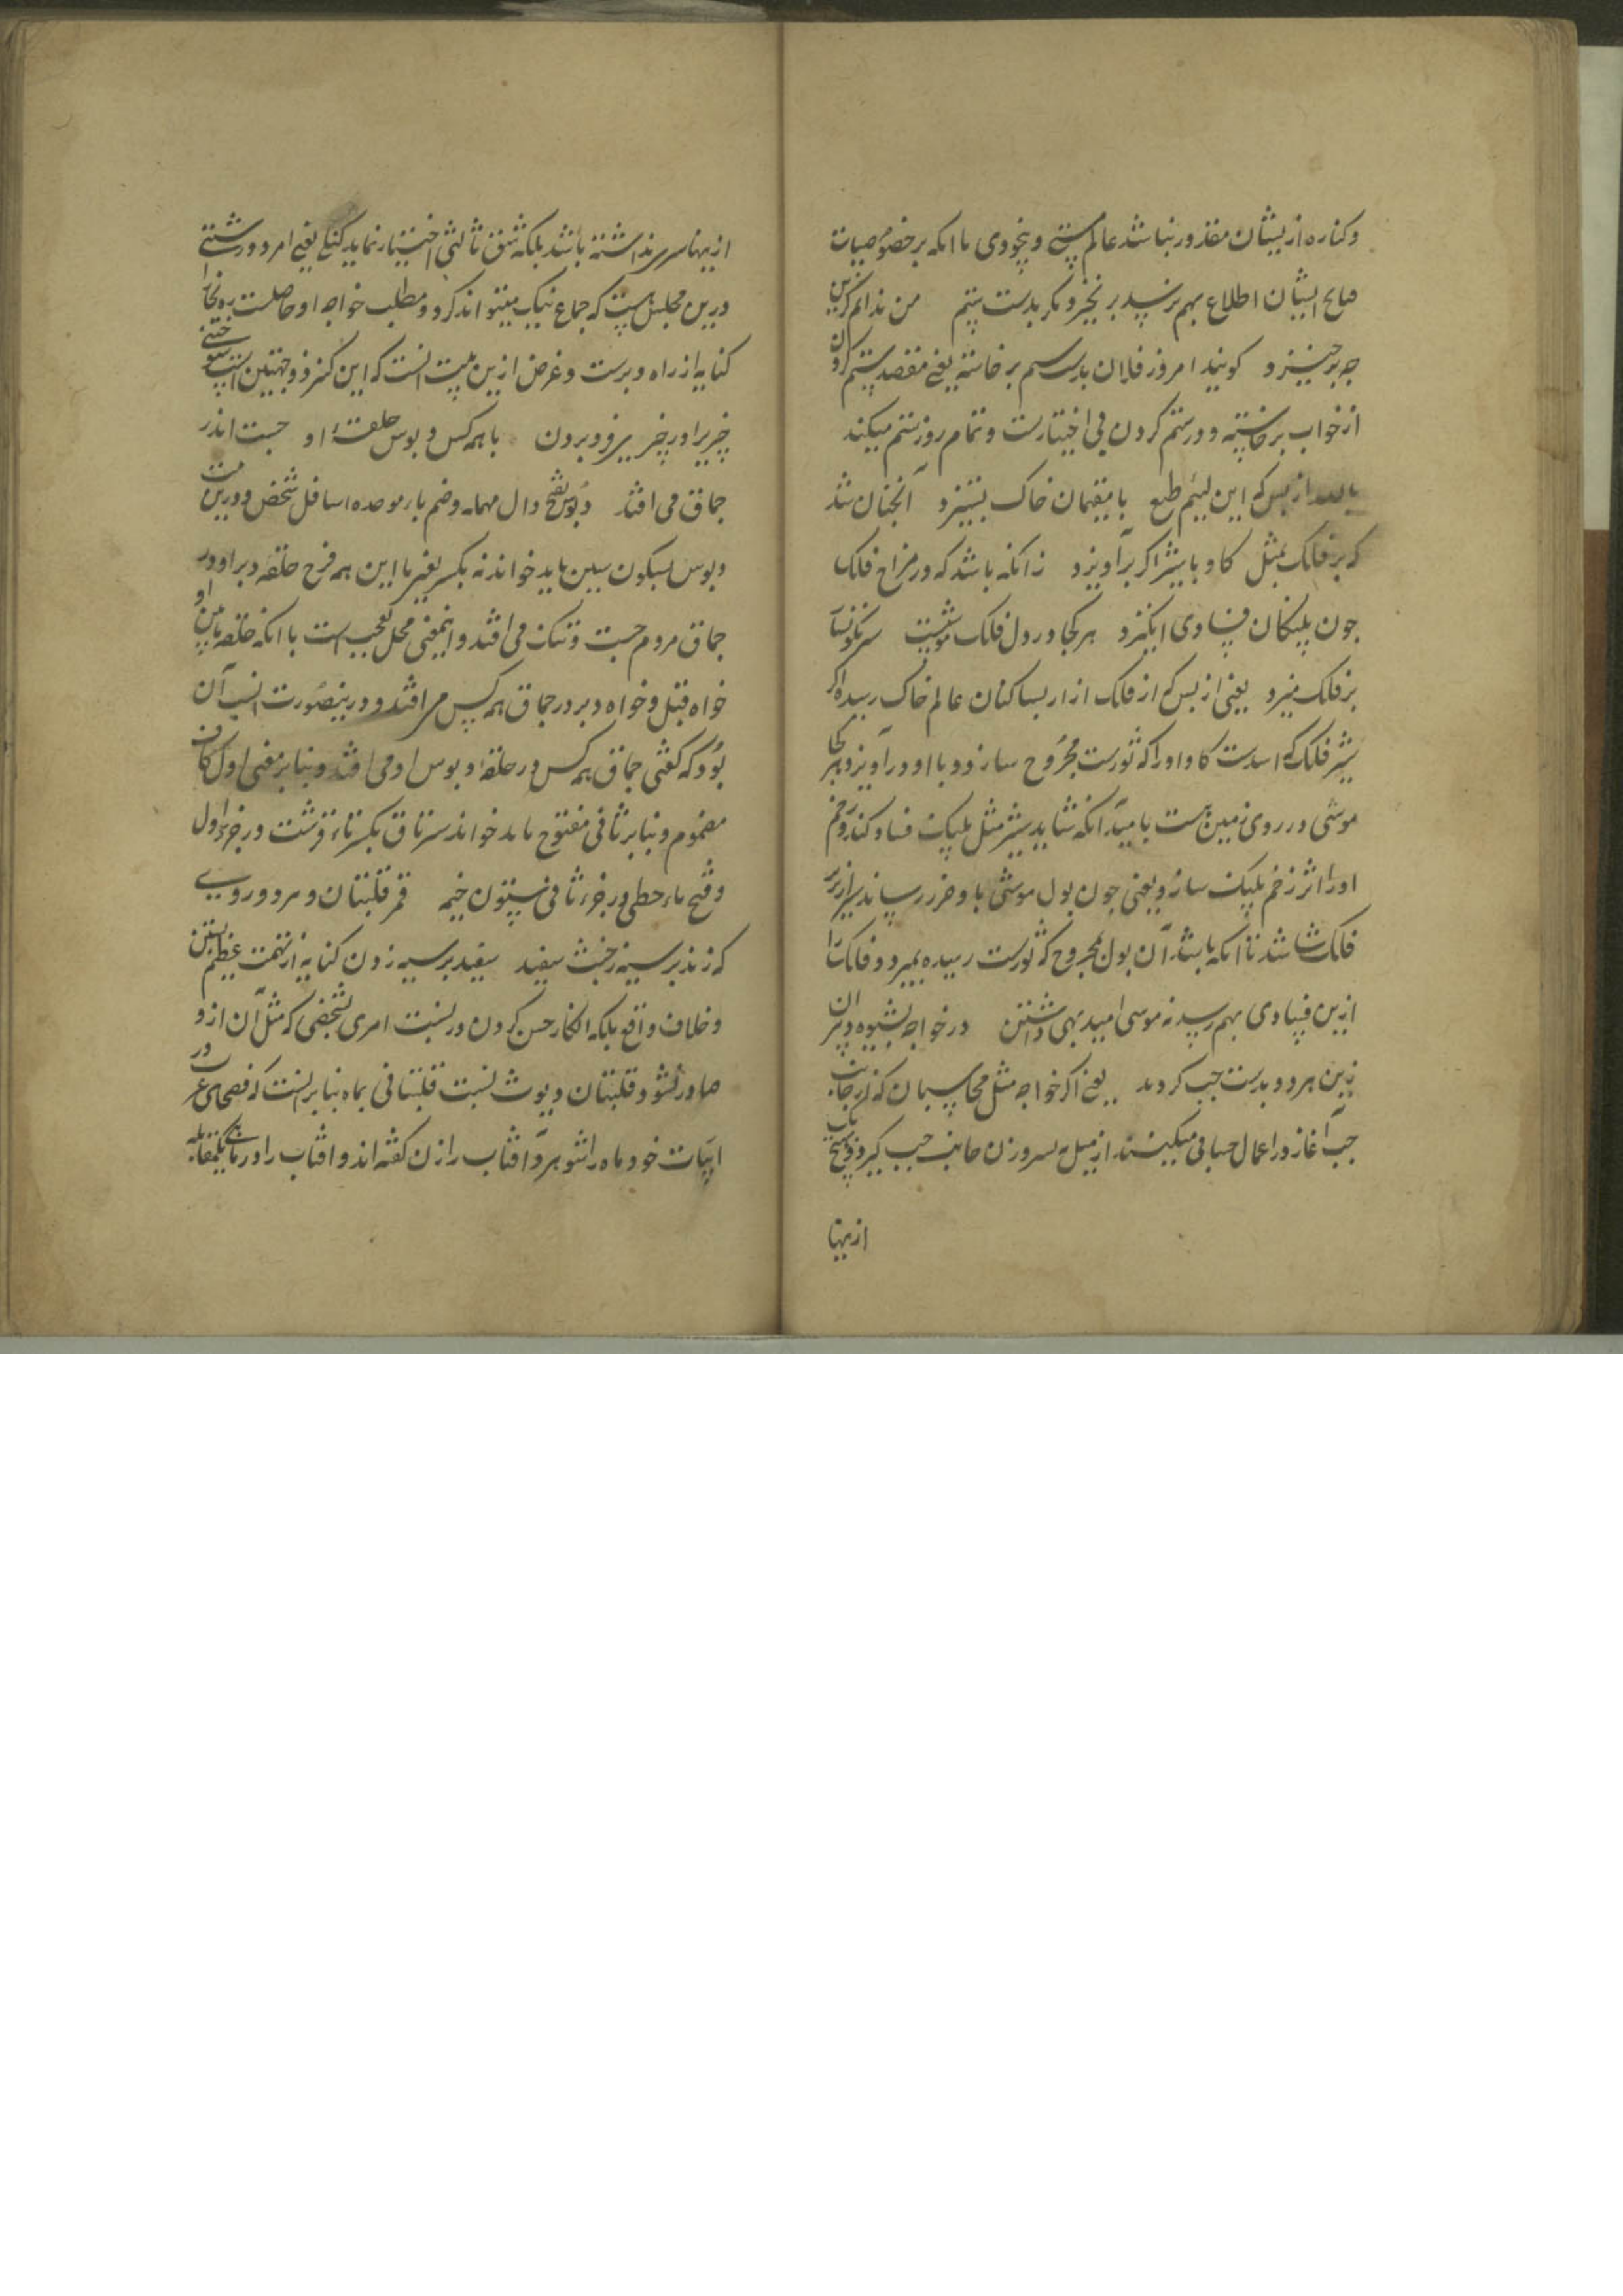 و کناره از ایشان مقدور نباشد عالم مستی و بیخودی با انکه بر خصوصیات
صالح ایشان اطلاع بهم نرسید برنخیزد مکر بدست ستم من ندانم کزین
چه برخیزد کویند امروز فلان بدست ستم برخاسته یعنی مقصد ستم کردن
از خواب برخاسته و در ستم کردن بی اختیارست و تمام روز ستم میکند
از بس که این لئیم طبع با مقیمان خاک بستیزد آنچنان شد
که بر فلک بمثل کاو با شیر اکر برآویزد زانکه باشد که در مزاج فلک
چون پلنکان فسادی انکیزد هر کجا در دل فلک موشیست سرنکونسار
بر فلک میزد یعنی از بس که از فلک ازار بساکنان عالم خاک رسیده اکر
شیر فلک که اسدست کاو او را که ثورست مجروح سازد و با او درآویزد هر کجا
موشی در روی زمین هست بامید انکه شاید شیر مثل پلنک فساد کند و زخم
او را اثر زخم پلنک سازد یعنی چون بول موشی باو ضرر رساند بر ازیر
فلک شاشد تا انکه باشد آن بول مجروح که ثورست رسیده بمیرد و فلک را
ازین فسادی بهم رسد نه موسی امید بهی داشتن در خواجه بشیوه دبیران
زین هر دو بدست چپ کردند یعنی اکر خواجه مثل محاسبان که از جانب
چپ آغاز در اعمال حسابی میکنند از میل پسر و زن جانب چپ کیرد و هیچ یک
ازینها
ازینها سر نداشته باشد بلکه شق ثالثی اختیار نماید کنکی یعنی امرد درشتی
درین مجلس هست که جماع نیک میتواند کرد و مطلب خواجه او حاصلست
کنایه از راه دبرست و غرض ازین بیت انست که این کنده ذو جهتین است
چیزیرا در چیزی فرو بردن با همه کس و بوس حلقهٔ او چست اندر
جماق می افتد دبوس بفتح دال مهمله و ضم باء موحده اسافل شخص و درین بیت
دبوس بسکون سین باید خواند نه بکسر یعنی با این همه فرخ حلقه دبر او در
جماق مردم چست و تنک می افتد و اینمعنی محل تعجب است با انکه حلقه پائین او
خواه قبل و خواه دبر در جماق همه کس می افتد و درینصورت انسب آن
بود که کفتی جماق همه کس در حلقه و بوس او می افتد و بنابر معنی اول کاف
مضموم و بنابر ثانی مفتوح باید خواند سرتاق بکسر تاء قرشت در جزء اول
و فتح حاء حطی در جزء ثانی ستون خیمه قمر قلتبان و مرد دورویی
که زند بر سیه زخبث سفید سفید بر سیه زدن کنایه از تهمت عظیم بستن
و خلاف واقع بلکه انکار حسن کردن در نسبت امری بشخصی که مثل آن ازو
صادر نشود و قلتبان دیوث نسبت قلتبانی بماه بنابر انست که فصحای عرب در
ابیات خود ماه را شوهر و آفتاب را زن کفته اند و آفتاب را در